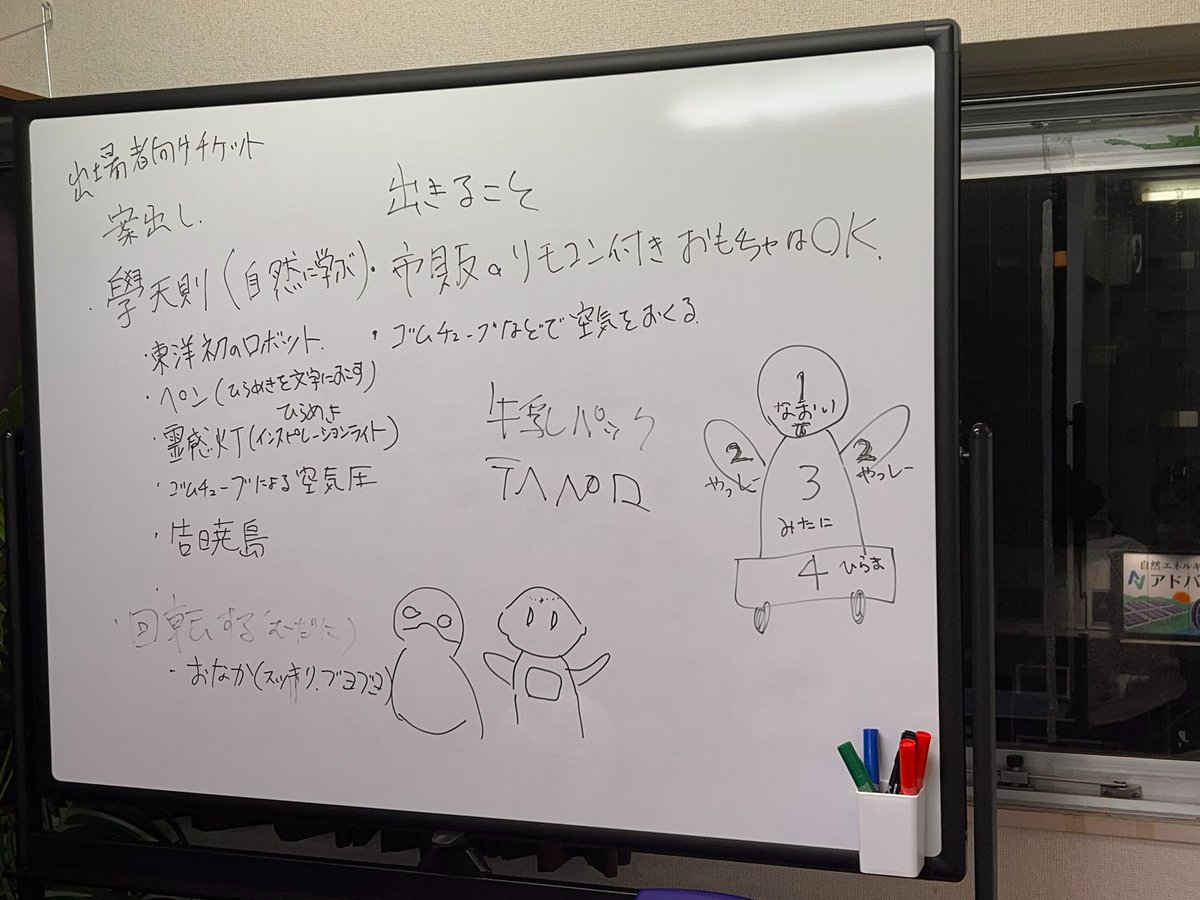 出場者向けチケット
案出し.
・學天則(自然に学ぶ)
・東洋初のロボット.
・ペン(ひらめきを文字におこす)
ひらめき
・霊感灯(インスピレーションライト)
・ゴムチューブによる空気圧
・告暁鳥
・回転する(むーだに)
・おなか(スッキリ.ブヨブヨ)
出きること
・市販のリモコン付きおもちゃはOK.
・ゴムチューブなどで空気をおくる.
牛乳パック
1
なおい
2
やっしー
2
やっしー
3
みたに
4 ひらま
自然エネルギ
アドバ